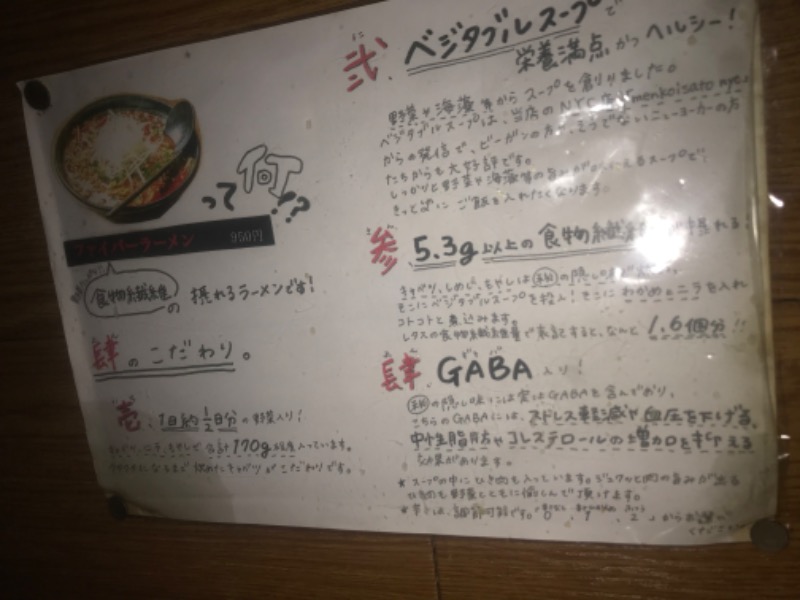 って何!?
ファイバーラーメン 950円
食物繊維の摂れるラーメンです!
肆のこだわり。
壱 1日約1/2日分の野菜入り!
ニラ、もやしで合計170g程度入っています。
弐 ベジタブルスープで
栄養満点かつヘルシー!
野菜や海藻等からスープを創りました。
ベジタブルスープは、当店のNYC店 menkoisato nyc
からの発信で、ビーガンの方 ニューヨーカーの方
たちからも大好評です。
しっかりと野菜や海藻等の旨み スープで
きっとぱいこご飯を入れたくなります。
参 5.3g以上の食物繊維 摂れる!
キャベツ、しめじ、もやしは の隠し
そこにベジタブルスープを投入!そこにわかめとニラを入れ
コトコトと煮込みます。
レタスの食物繊維量で表記すると、なんと1.6個分!!
肆 GABA入り!
の隠し味には実はGABAを含んでおり、
こちらのGABAには、ストレス軽減や血圧を下げる、
中性脂肪やコレステロールの増加を抑える
効果があります。
★スープの中にひき肉も入っています。ジュワッと肉の旨みが出る
ひき肉も野菜とともに楽しんで頂けます。
★辛さは、調節可能です。 からお選び